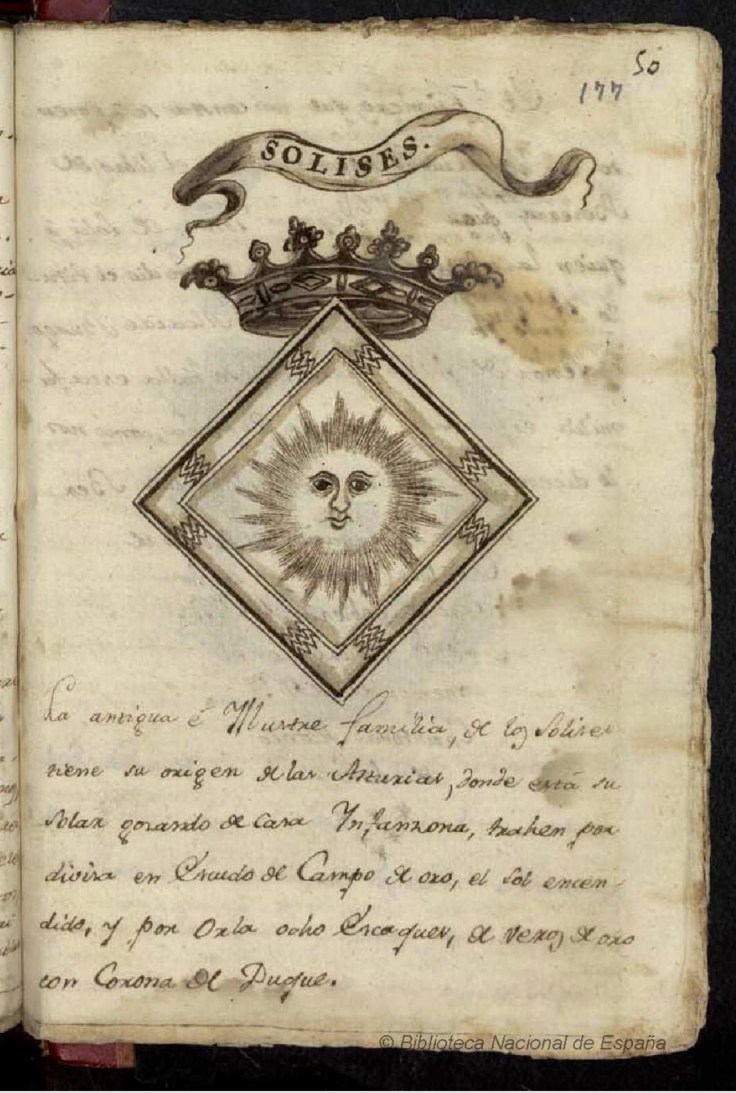 50
177
SOLISES.
La antigua é Illustre familia, de los Solises
tiene su origen de las Asturias, donde está su
Solar gozando de Casa Infanzona, trahen por
divisa en Escudo de Campo de oro, el Sol encen-
dido, y por Orla ocho Escaques, de veros de oro
con Corona de Duque.
© Biblioteca Nacional de España